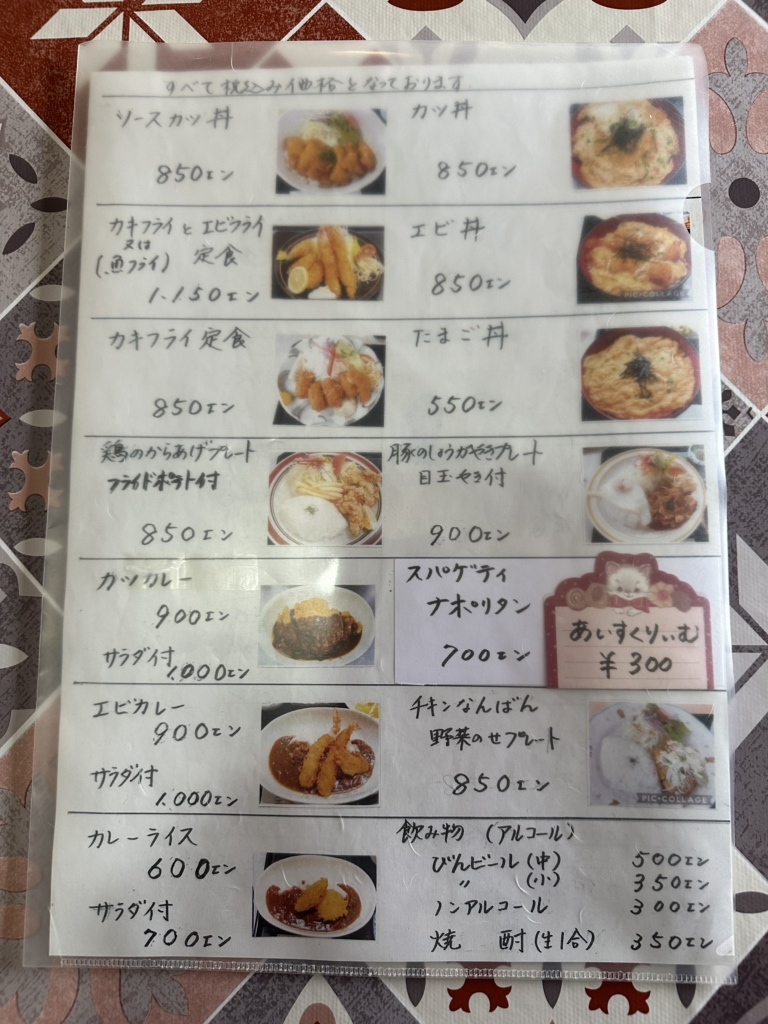 すべて税込み価格となっております
ソースカツ丼
850エン
カツ丼
850エン
カキフライとエビフライ
又は
(魚フライ) 定食
1.150エン
エビ丼
850エン
カキフライ定食
850エン
たまご丼
550エン
鶏のからあげプレート
フライドポテト付
850エン
豚のしょうがやきプレート
目玉やき付
900エン
カツカレー
900エン
サラダ付
1.000エン
スパゲティ
ナポリタン
700エン
あいすくりぃむ
¥300
エビカレー
900エン
サラダ付
1.000エン
チキンなんばん
野菜のせプレート
850エン
PIC•COLLAGE
カレーライス
600エン
サラダ付
700エン
飲み物 (アルコール)
びんビール(中) 500エン
〃 (小) 350エン
ノンアルコール 300エン
焼 酎(生1合) 350エン